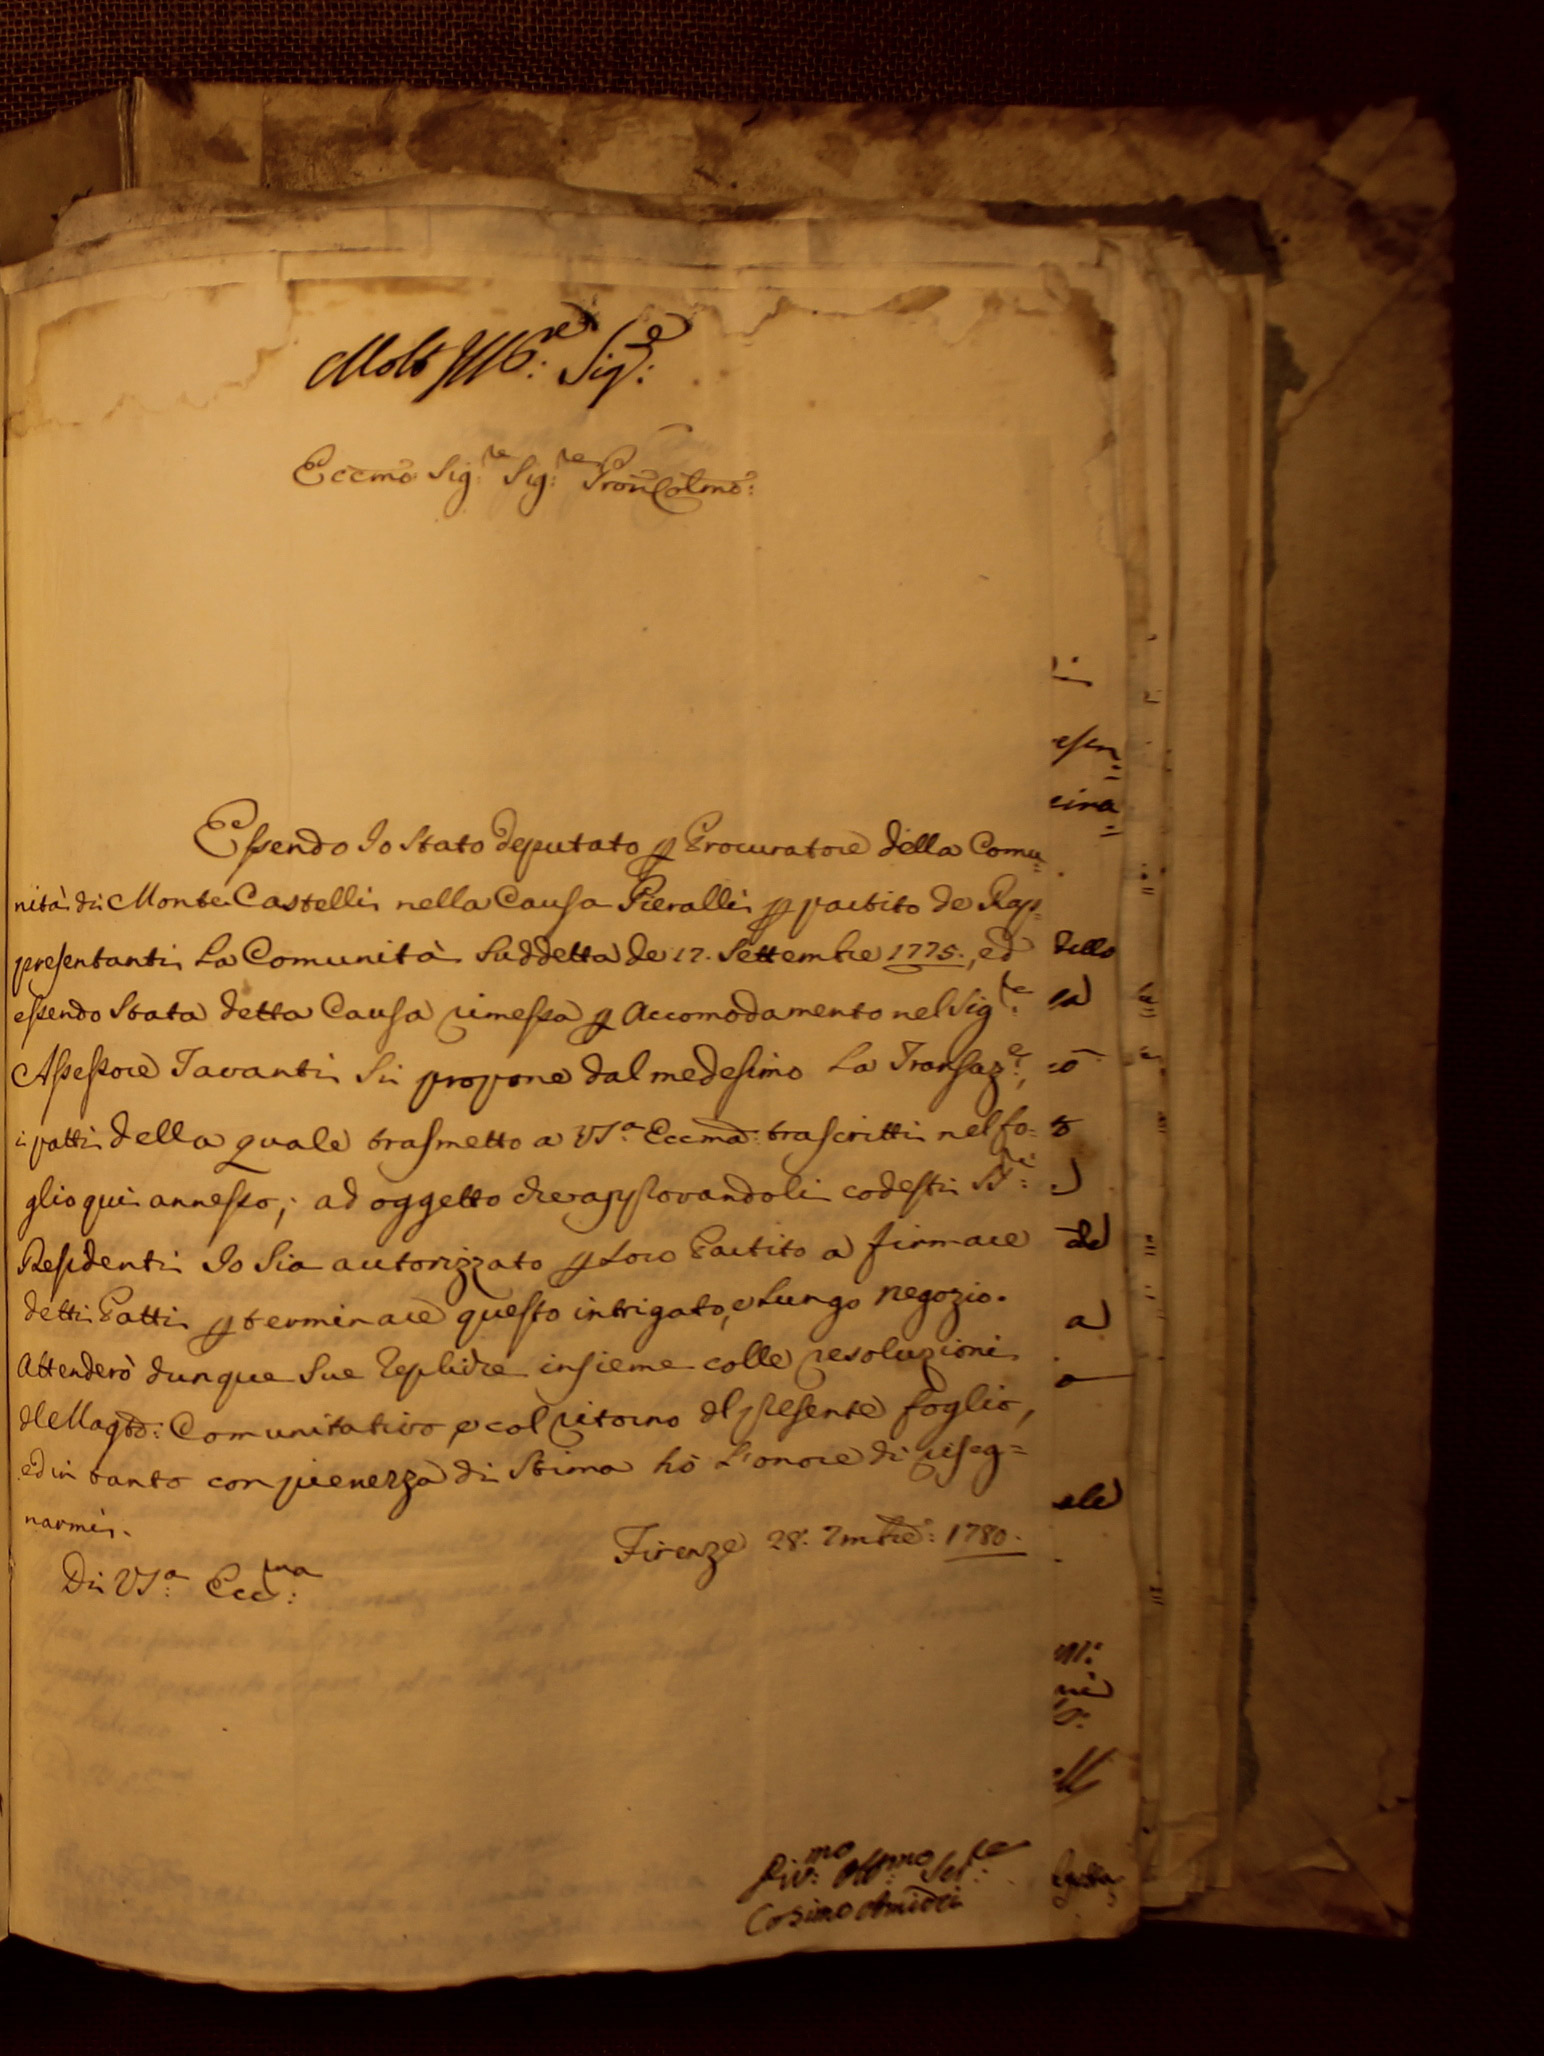 Molto Ill:re Sig:e
Eccmo: Sig:re Sig:re Pron Colmo:
Essendo Io Stato deputato p Procuratore della Comu=
nità di Monte Castelli nella Causa Pieralli p partito de Rap=
presentanti La Comunità Suddetta de 17. Settembre 1775., ed
essendo Stata detta Causa rimessa p Accomodamento nel Sig:re
Assessore Tavanti Si propone dal medesimo La Transaz:e,
i patti della quale trasmetto a VS:a Eccma: trascritti nel fo=
glio qui annesso; ad oggetto che approvandoli codesti SS:ri
Residenti Io Sia autorizzato p Loro Partito a firmare
detti Patti p terminare questo intrigato, e Lungo negozio.
Attenderò dunque Sue repliche insieme colle resoluzioni
del Magto: Comunitativo e col ritorno del presente foglio,
ed in tanto con pienezza di Stima hò L'onore di riseg=
narmi.
Di VS:a Ecc:ma
Firenze 28. 7mbre: 1780.
Div:mo Obb:mo Ser:re
Cosimo Amidei
dello